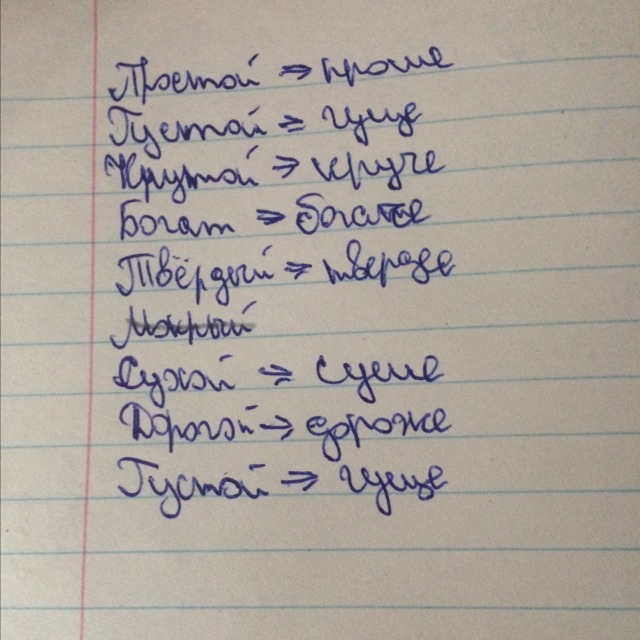 Простой => проще
Густой => гуще
Крутой => круче
Богат => богаче
Твёрдый => тверже
Мокрый
Сухой => суше
Дорогой -> дороже
Густой => гуще